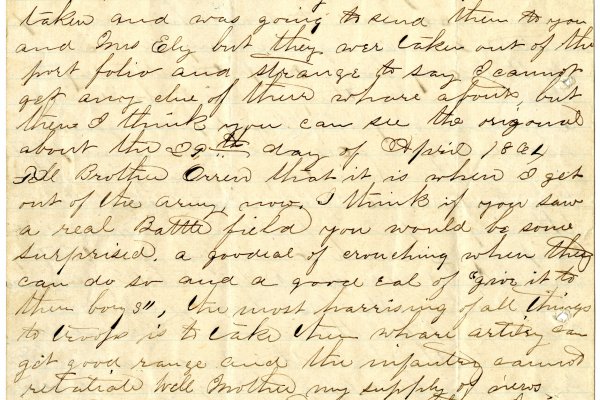 taken and was going to send them to you
and Mrs Ely but they wer taken out of the
port folio and strange to say I cannot
get any clue of their whare about, but
then I think you can see the origonal
about the 29th day of April 1864
Tell Brother Orren that it is when I get
out of the army now. I think if you saw
a real Battle field you would be some
surprised. a goodeal of crouching when they
can do so and a good eal of "give it to
them boys", the most harrising of all things
to troops is to take them whare artilry can
get good range and the infantry cannot
retaliate Well Mother my supply of news